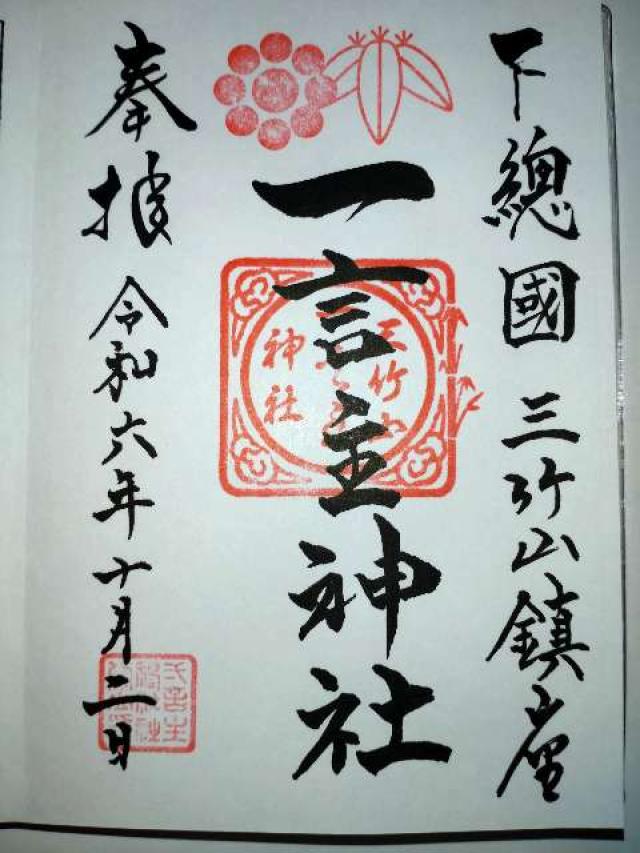 下總國 三竹山鎮座
一言主神社
奉拝 令和六年十月二日
三竹山
神社